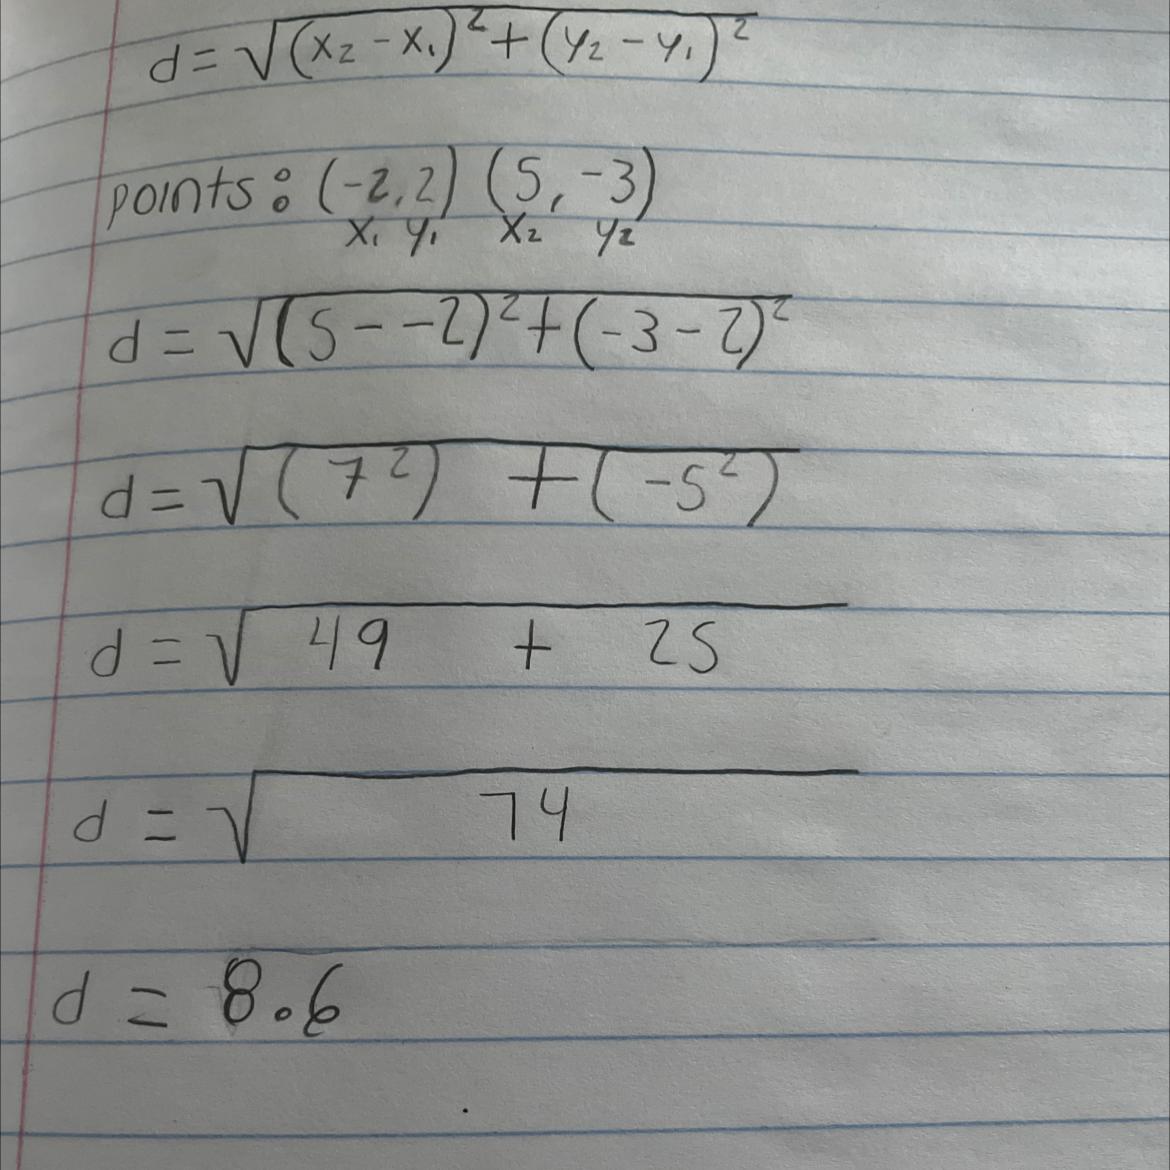 d = √(x₂ - x₁)² + (y₂ - y₁)²
points: (-2, 2) (5, -3)
x₁ y₁ x₂ y₂
d = √(5 - -2)² + (-3 - 2)²
d = √(7²) + (-5²)
d = √49 + 25
d = √74
d = 8.6